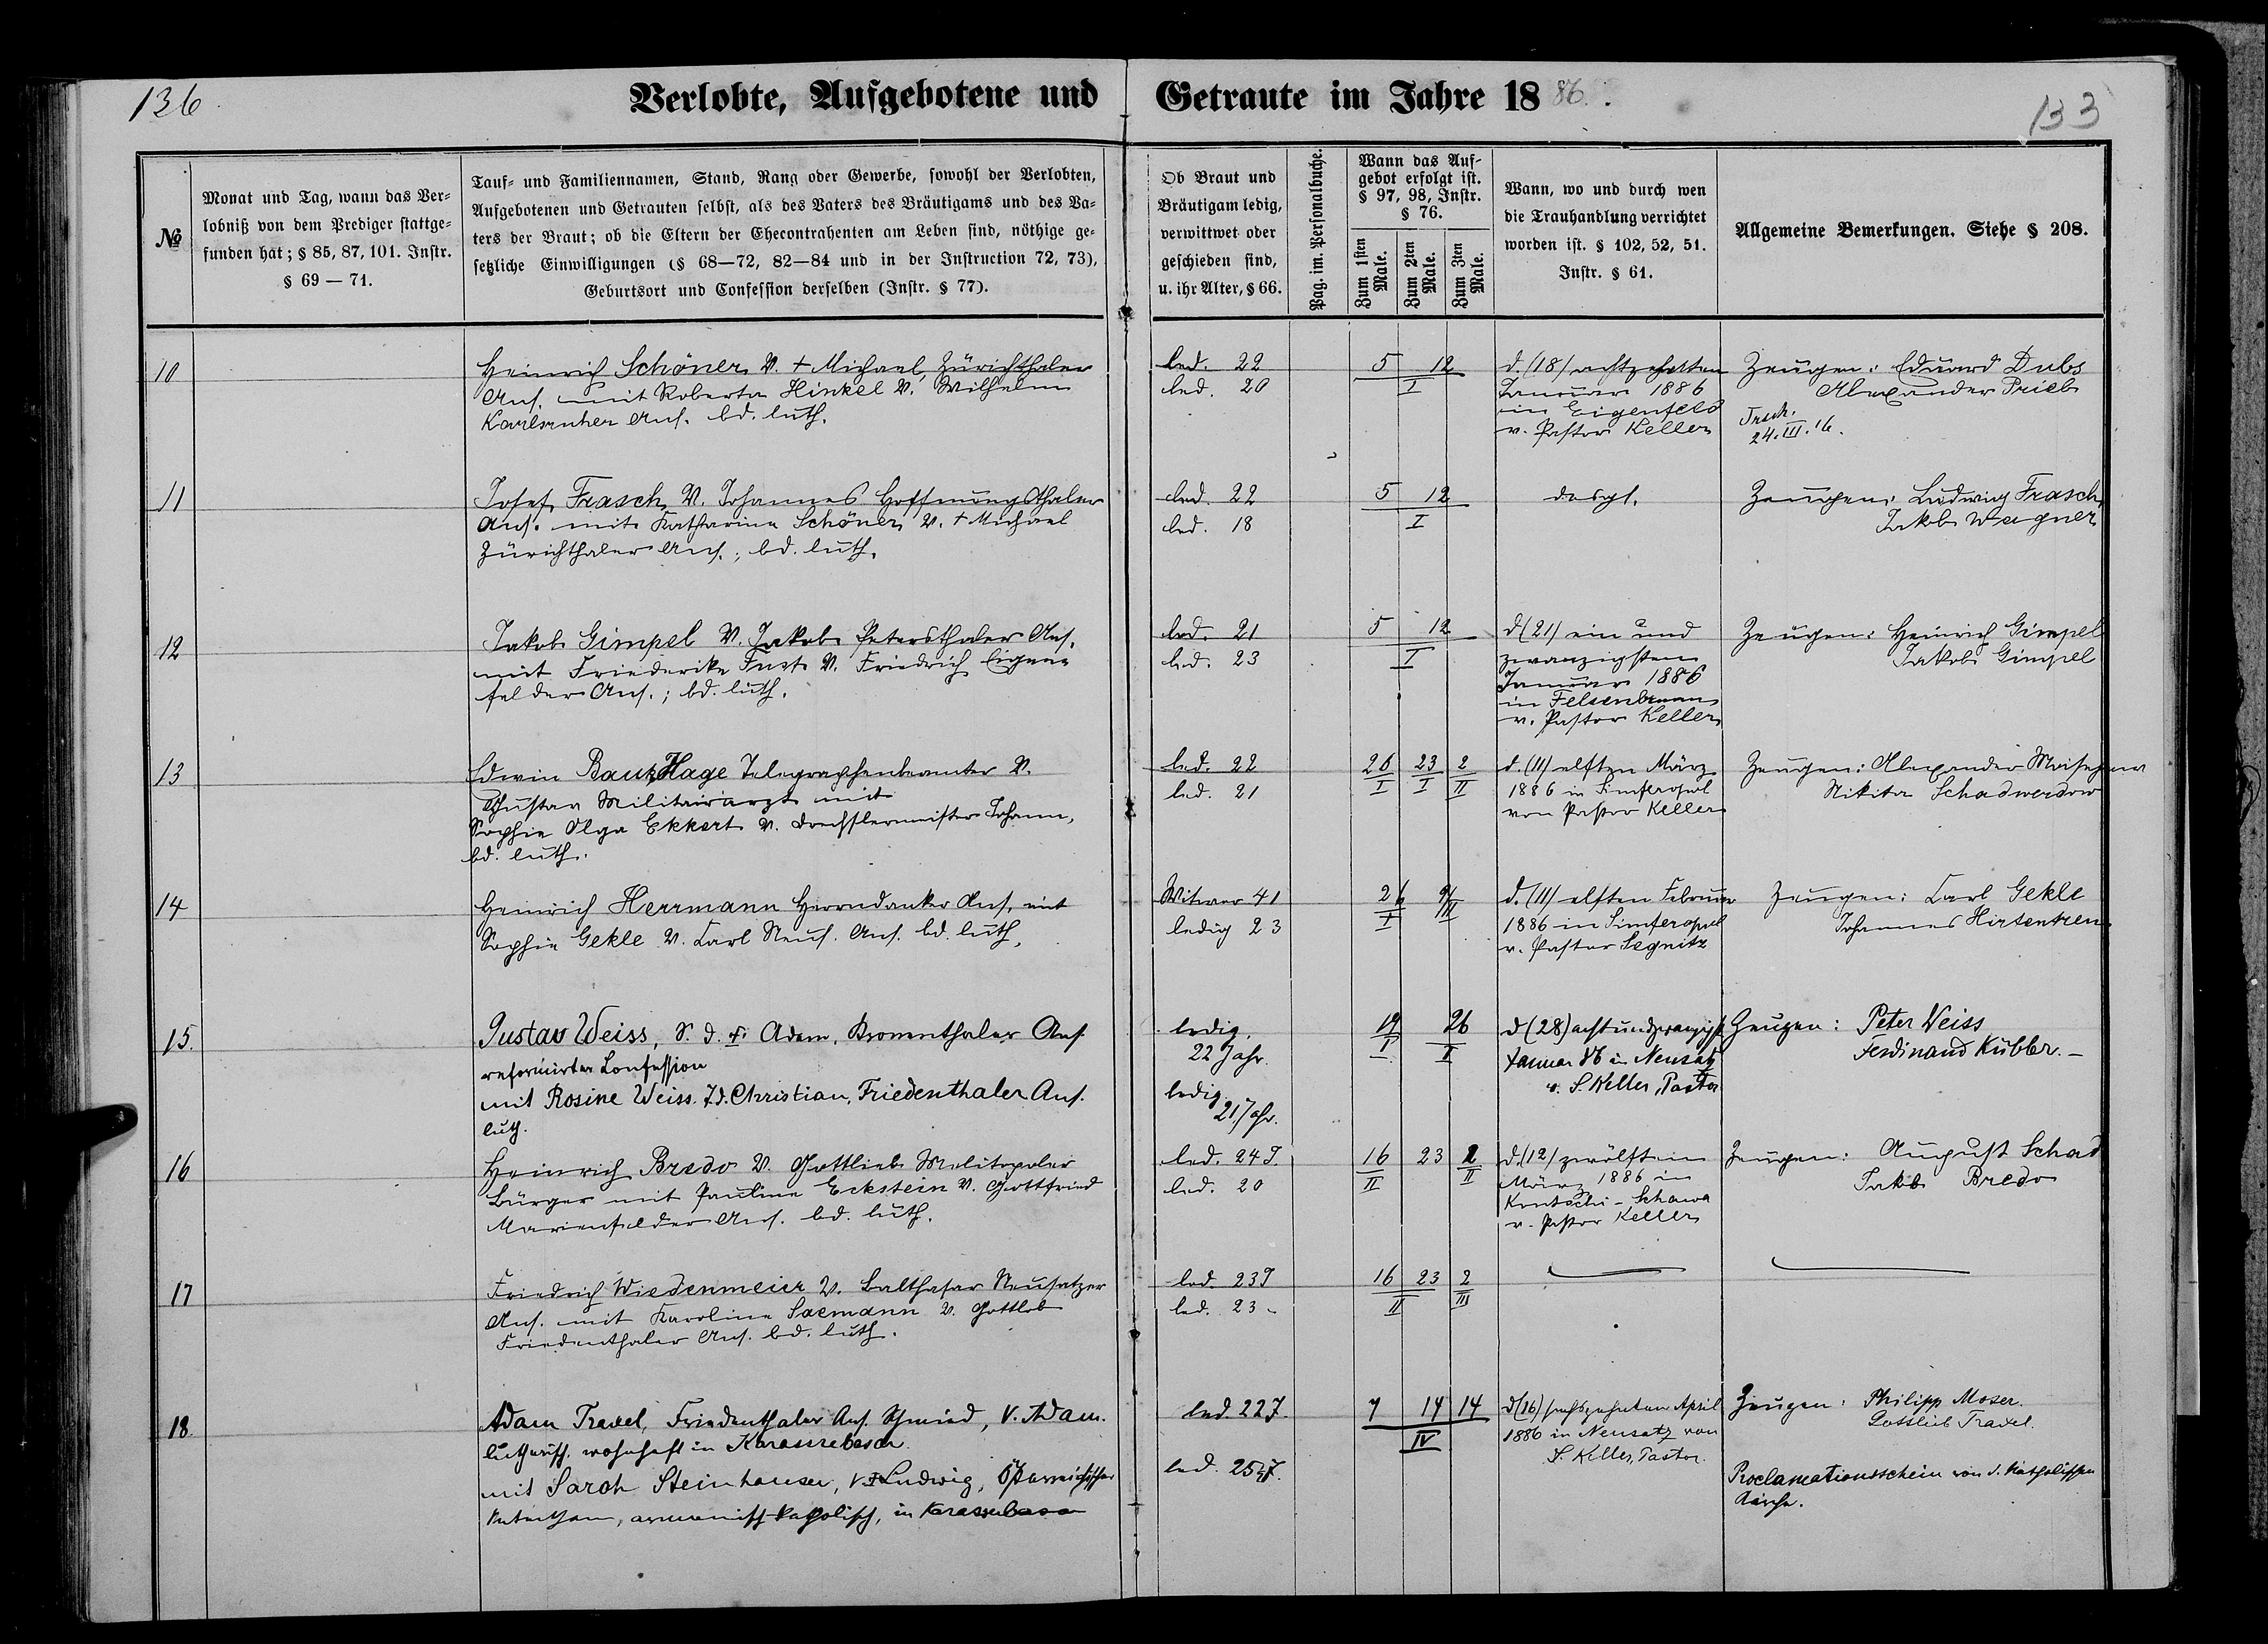 136
Verlobte, Aufgebotene und Getraute im Jahre 1886.
133
№
Monat und Tag, wann das Ver-
lobniß von dem Prediger stattge-
funden hat; § 85, 87, 101. Instr.
§ 69 — 71.
Tauf- und Familiennamen, Stand, Rang oder Gewerbe, sowohl der Verlobten,
Aufgebotenen und Getrauten selbst, als des Vaters des Bräutigams und des Va-
ters der Braut; ob die Eltern der Ehecontrahenten am Leben sind, nöthige ge-
setzliche Einwilligungen (§ 68—72, 82—84 und in der Instruction 72, 73),
Geburtsort und Confession derselben (Instr. § 77).
Ob Braut und
Bräutigam ledig,
verwittwet oder
geschieden sind,
u. ihr Alter, § 66.
Pag. im. Personalbuche.
Wann das Auf-
gebot erfolgt ist.
§ 97, 98, Instr.
§ 76.
Zum 1sten
Male.
Zum 2ten
Male.
Zum 3ten
Male.
Wann, wo und durch wen
die Trauhandlung verrichtet
worden ist. § 102, 52, 51.
Instr. § 61.
Allgemeine Bemerkungen. Siehe § 208.
10
Heinrich Schöner V. + Michael, Zürichthaler
Ans. mit Roberta Hinkel V. Wilhelm
Karlsruher Ans. bd. luth.
led. 22
led. 20
5 12
I
d. (18) achtzehnten
Januar 1886
in Eigenfeld
v. Pastor Keller
Zeugen: Eduard Dubs
Alexander Prieb
Trsch.
24.III.16.
11
Josef Frasch V. Johannes Hoffnungsthaler
Ans. mit Katharina Schöner V. + Michael
Zürichthaler Ans.; bd. luth.
led. 22
led. 18
5 12
I
desgl.
Zeugen: Ludwig Frasch
Jakob Wagner
12
Jakob Gimpel V. Jakob Petersthaler Ans.
mit Friederike Fust V. Friedrich Eigen-
felder Ans.; bd. luth.
led. 21
led. 23
5 12
I
d (21) ein und
zwanzigsten
Januar 1886
in Felsenbrunn
v. Pastor Keller
Zeugen: Heinrich Gimpel
Jakob Gimpel
13
Edwin BautzHage Telegraphenbeamter V.
Gustav Militairarzt mit
Sophie Olga Ekkert V. Drechslermeister Johann,
bd. luth.
led. 22
led. 21
26 23 2
I I II
d. (11) elften März
1886 in Simferopol
von Pastor Keller
Zeugen: Alexander
Nikita Schadwerdow
14
Heinrich Herrmann Herrndanker Ans. mit
Sophie Gekle V. Carl Neus. Ans. bd. luth.
Witwer 41
ledig 23
26
I
d. (11) elften Februar
1886 in Simferopol
v. Pastor Segnitz
Zeugen: Carl Gekle
Johannes
15.
Gustav Weiss, S. d. + Adam, Kronenthaler Ans.
reformirter Confession
mit Rosine Weiss. T.d. Christian, Friedenthaler Ans.
luth.
ledig.
22 Jahr.
ledig.
21 Jahr.
19 26
I I
d (28) achtundzwanzigst
Januar 86 in Neusatz
v. S. Keller, Pastor
Zeugen: Peter Weiss
Ferdinand Kübler. –
16
Heinrich Bredo V. Gottlieb Melitopoler
Bürger mit Pauline Eckstein V. Gottfried
Marienfelder Ans. bd. luth.
led. 24 J.
led. 20
16 23 2
II II
d. (12) zwölften
März 1886 in
Kontschi - Schawa
v. Pastor Keller
Zeugen: August Schad
Jakob Bredo
17
Friedrich Wiedenmeier V. Balthasar Neusatzer
Ans. mit Karoline Saemann V. Gottlob
Friedenthaler Ans. bd. luth.
led. 23 J
led. 23 -
16 23 2
II III
18
Adam Traxel, Friedenthaler Ans. Schmied, V. Adam.
lutherisch. wohnhaft in Karassubasar
mit Sarah Steinhauser, V. + Ludwig, Österreichischer
Unterthan, armenisch-katholisch, in Karassubasar
led. 22 J.
led. 25 J.
7 14 14
IV
d (16) sechszehnten April
1886 in Neusatz von
S. Keller, Pastor.
Zeugen: Philipp Moser.
Gottlieb Traxel.
Proclamationsschein von d. katholischen
Kirche.